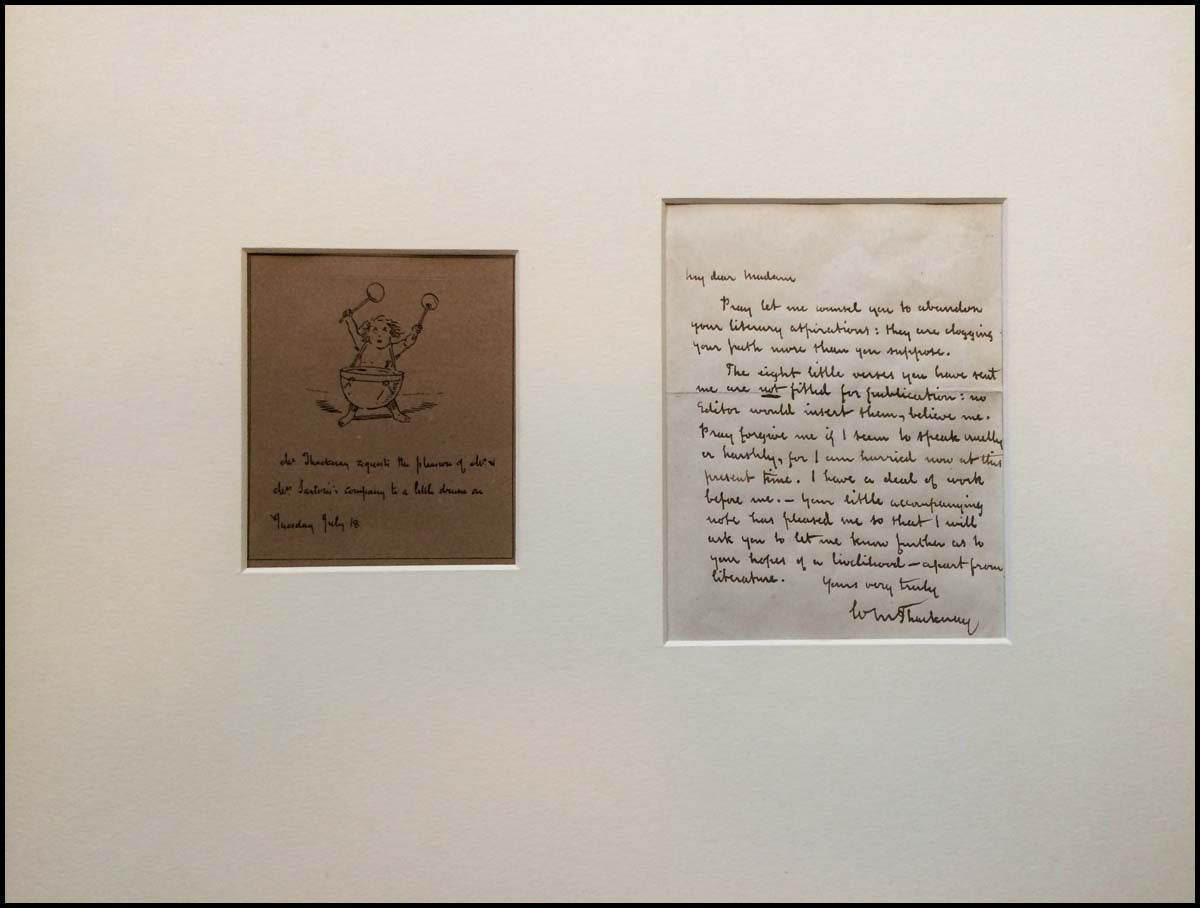 Mr Thackeray requests the pleasure of Mr &
Mrs Sartoris's company to a little drum on
Tuesday July 18
My dear Madam
Pray let me counsel you to abandon
your literary aspirations: they are clogging
your path more than you suppose.
The eight little verses you have sent
me are not fitted for publication: no
Editor would insert them, believe me.
Pray forgive me if I seem to speak cruelly
or harshly, for I am hurried now at this
present time. I have a deal of work
before me. — Your little accompanying
note has pleased me so that I will
ask you to let me know further as to
your hopes of a livelihood — apart from
literature. Yours very truly
W M Thackeray